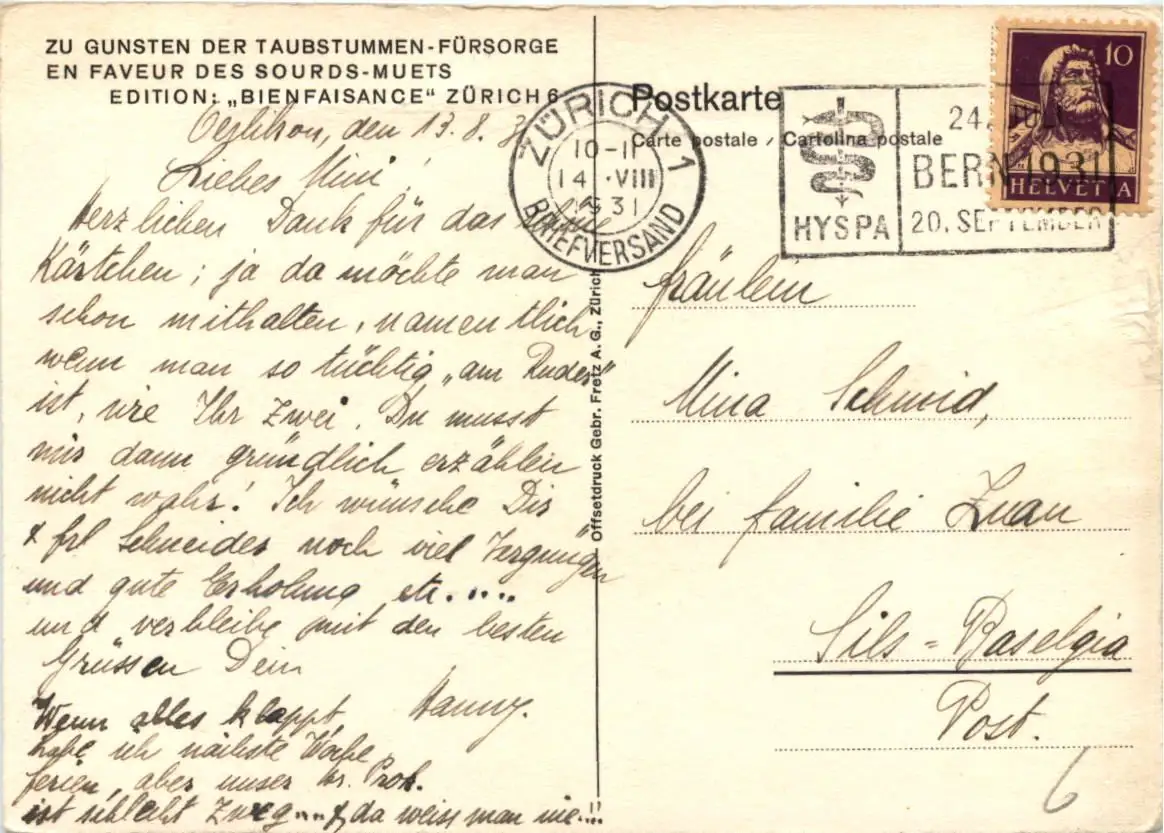 ZU GUNSTEN DER TAUBSTUMMEN-FÜRSORGE
EN FAVEUR DES SOURDS-MUETS
EDITION: „BIENFAISANCE“ ZÜRICH 6
Oerlikon, den 13. 8. 31
Liebes Mini!
Herzlichen Dank für das
Kärtchen; ja da möchte man
schon mithalten, namentlich
wenn man so tüchtig „am Ruder“
ist, wie Ihr Zwei. Du musst
mir dann gründlich erzählen
nicht wahr! Ich wünsche Dir
& Frl Schneider noch viel Vergnügen
und gute Erholung etc....
und verbleibe mit den besten
Grüssen Dein
Hanny.
Wenn alles klappt,
habe ich nächste Woche
Ferien, aber unser Hr. Prok.
ist schlecht & da weiss man nie....
Offsetdruck Gebr. Fretz A. G., Zürich
Postkarte
Carte postale / Cartolina postale
ZÜRICH 1
10-11
14.VIII
1931
BRIEFVERSAND
HYSPA
24. JULI
BERN 1931
20. SEPTEMBER
10
HELVETIA
Fräulein
Mina Schmid,
bei Familie Zuan
Sils=Baselgia
Post.
6